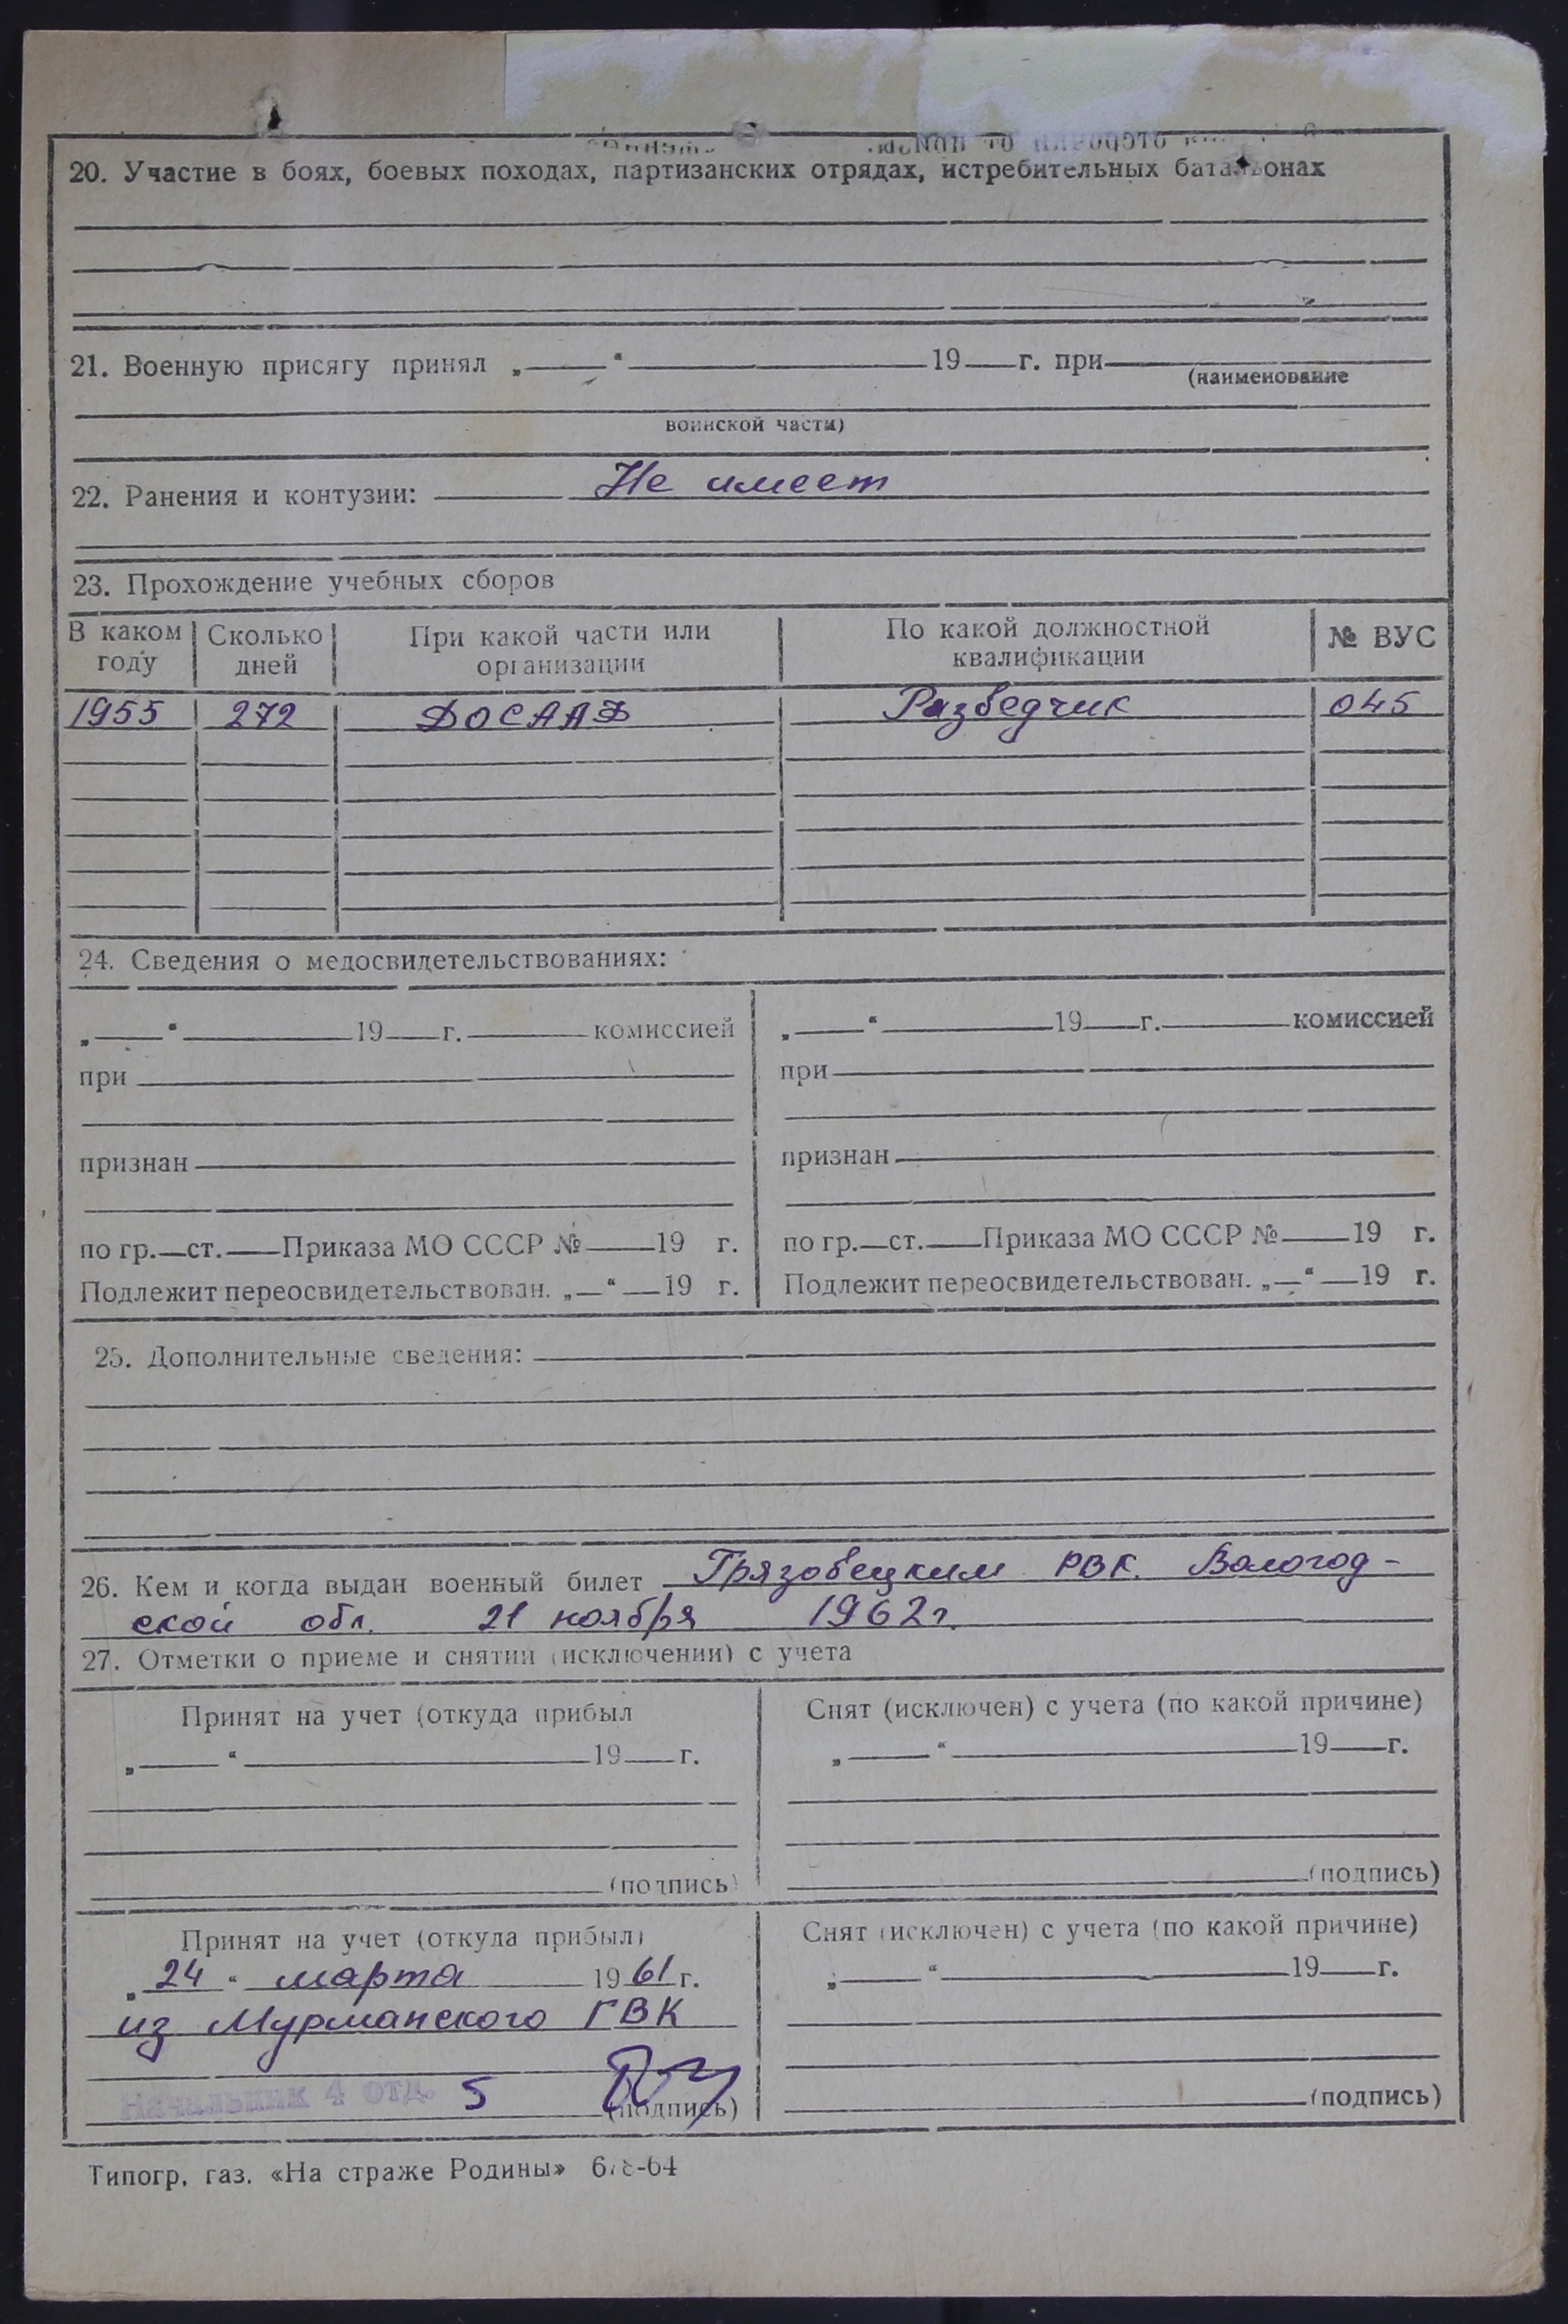 20. Участие в боях, боевых походах, партизанских отрядах, истребительных батальонах
21. Военную присягу принял „ “ 19 г. при
(наименование
воинской части)
22. Ранения и контузии: Не имеет
23. Прохождение учебных сборов
В каком году Сколько дней При какой части или организации По какой должностной квалификации № ВУС
1955 272 ДОСААФ Разведчик 045
24. Сведения о медосвидетельствованиях:
„ “ 19 г. комиссией „ “ 19 г. комиссией
при при
признан признан
по гр. ст. Приказа МО СССР № 19 г. по гр. ст. Приказа МО СССР № 19 г.
Подлежит переосвидетельствован. „ “ 19 г. Подлежит переосвидетельствован. „ “ 19 г.
25. Дополнительные сведения:
26. Кем и когда выдан военный билет Грязовецким РВК. Вологод-
ской обл. 21 ноября 1962г.
27. Отметки о приеме и снятии (исключении) с учета
Принят на учет (откуда прибыл Снят (исключен) с учета (по какой причине)
„ “ 19 г. „ “ 19 г.
(подпись) (подпись)
Принят на учет (откуда прибыл) Снят (исключен) с учета (по какой причине)
„24“ марта 1961 г. „ “ 19 г.
из Мурманского ГВК
Начальник 4 отд. 5 (подпись) (подпись)
Типогр. газ. «На страже Родины»